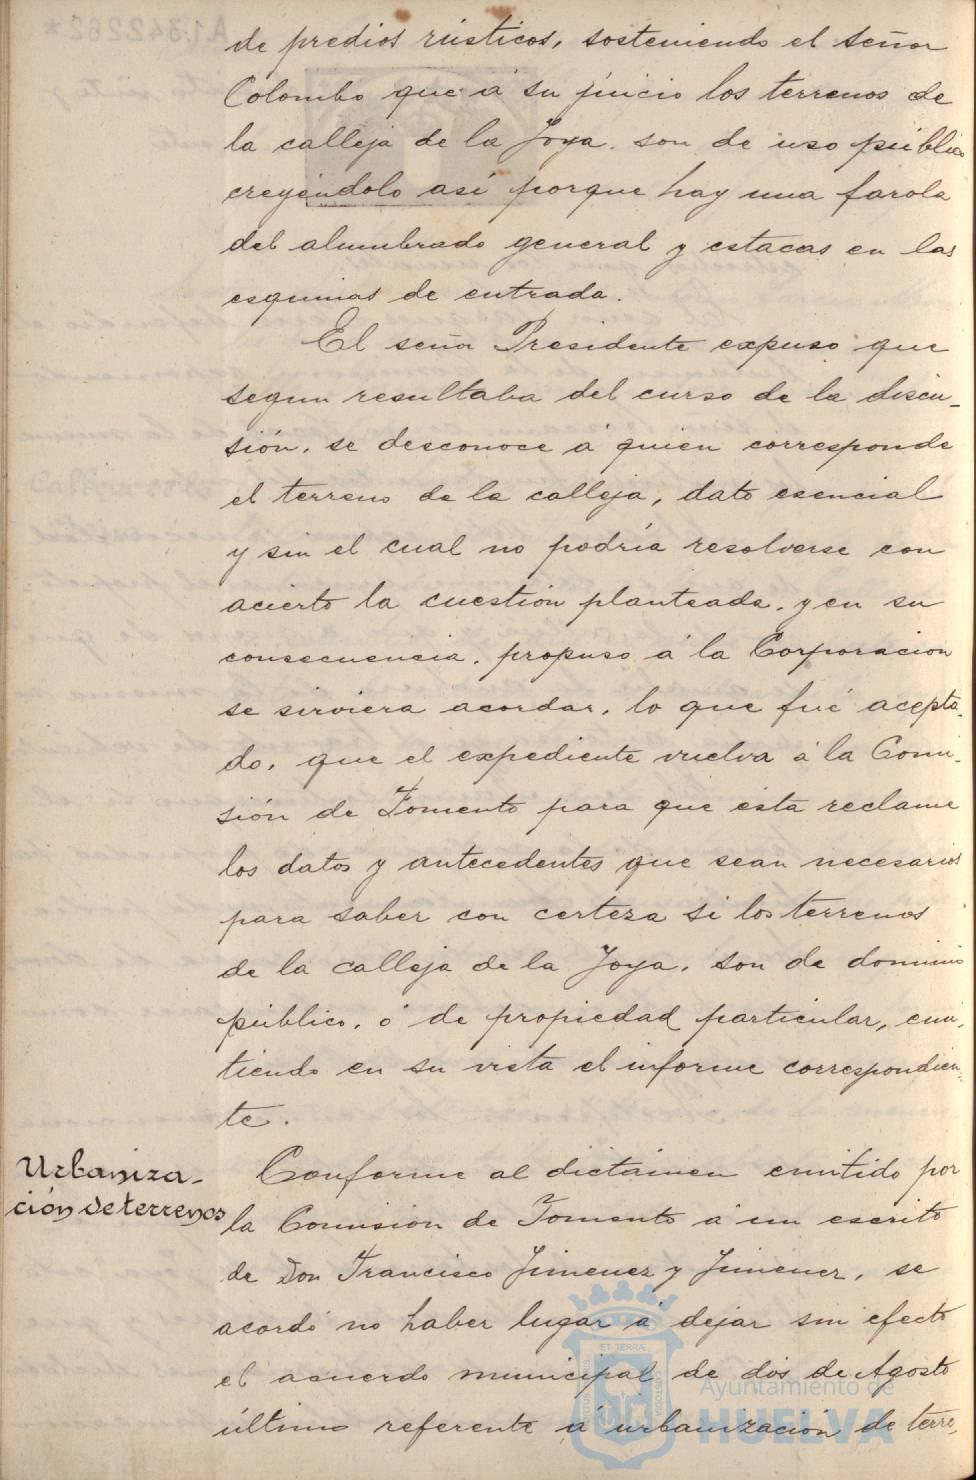 de predios rústicos, sosteniendo el señor
Colombo que á su juicio los terrenos de
la calleja de la Joya. son de uso público
creyéndolo así porque hay una farola
del alumbrado general y estacas en las
esquinas de entrada.
El señor Presidente expuso que
segun resultaba del curso de la discu-
sión, se desconoce á quien corresponde
el terreno de la calleja, dato esencial
y sin el cual no podría resolverse con
acierto la cuestion planteada, y en su
consecuencia, propuso á la Corporacion
se sirviera acordar, lo que fué acepta-
do, que el expediente vuelva á la Comi-
sión de Fomento para que ésta reclame
los datos y antecedentes que sean necesarios
para saber con certeza si los terrenos
de la calleja de la Joya, son de dominio
público, ó de propiedad particular, emi-
tiendo en su vista el informe correspondien-
te.
Urbaniza-
ción de terrenos
Conforme al dictámen emitido por
la Comision de Fomento á un escrito
de Don Francisco Jimenez y Jimenez, se
acordó no haber lugar á dejar sin efecto
el acuerdo municipal de dos de Agosto
último referente á urbanizacion de terre-
ET TERRÆ
Ayuntamiento de
HUELVA